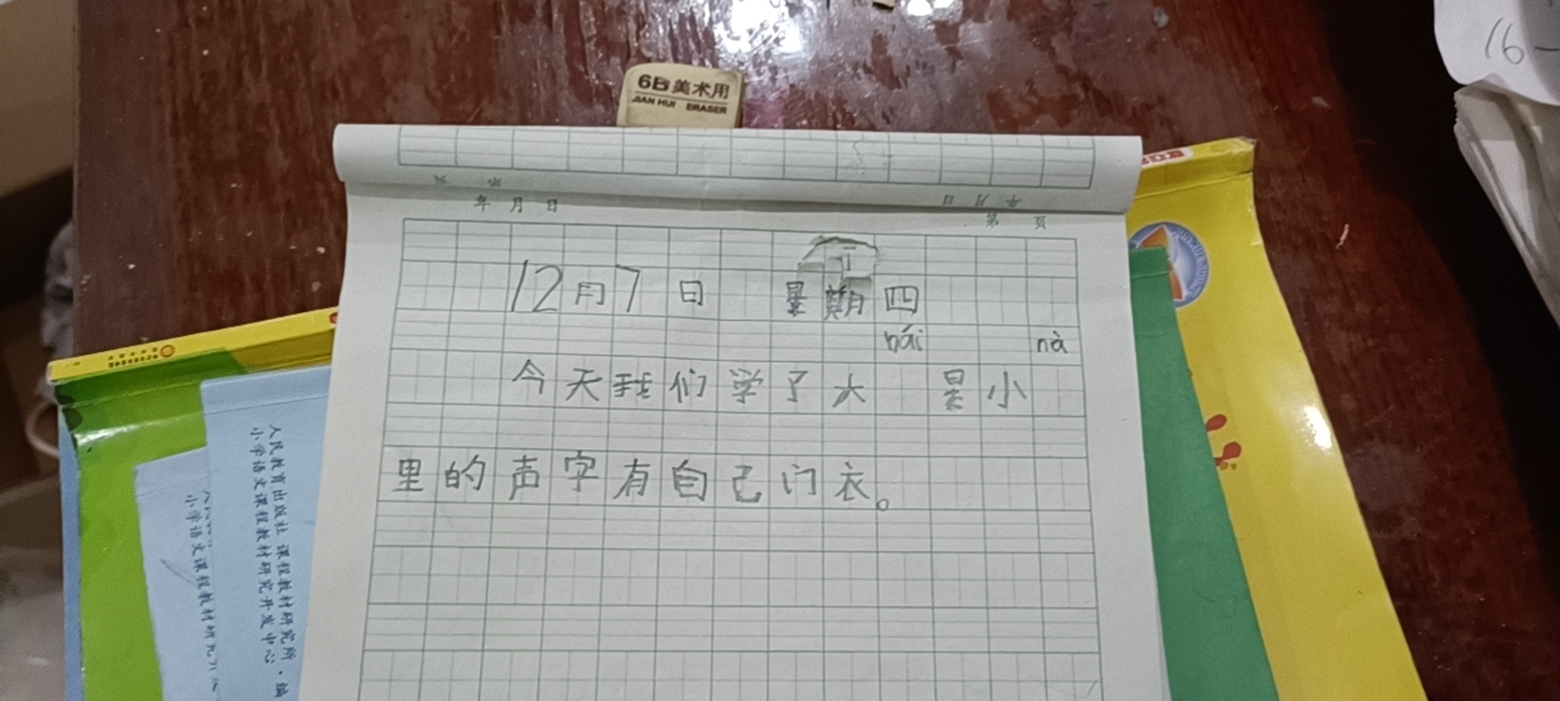 16-
6B美术用
JIAN HUI ERASER
年 月 日
第 页
12月7日 星期四
nái nà
今天我们学了大 是小
里的声字有自己门衣。
人民教育出版社 课程教材研究所·编
小学语文课程教材研究开发中心
小学语文课程教材研究